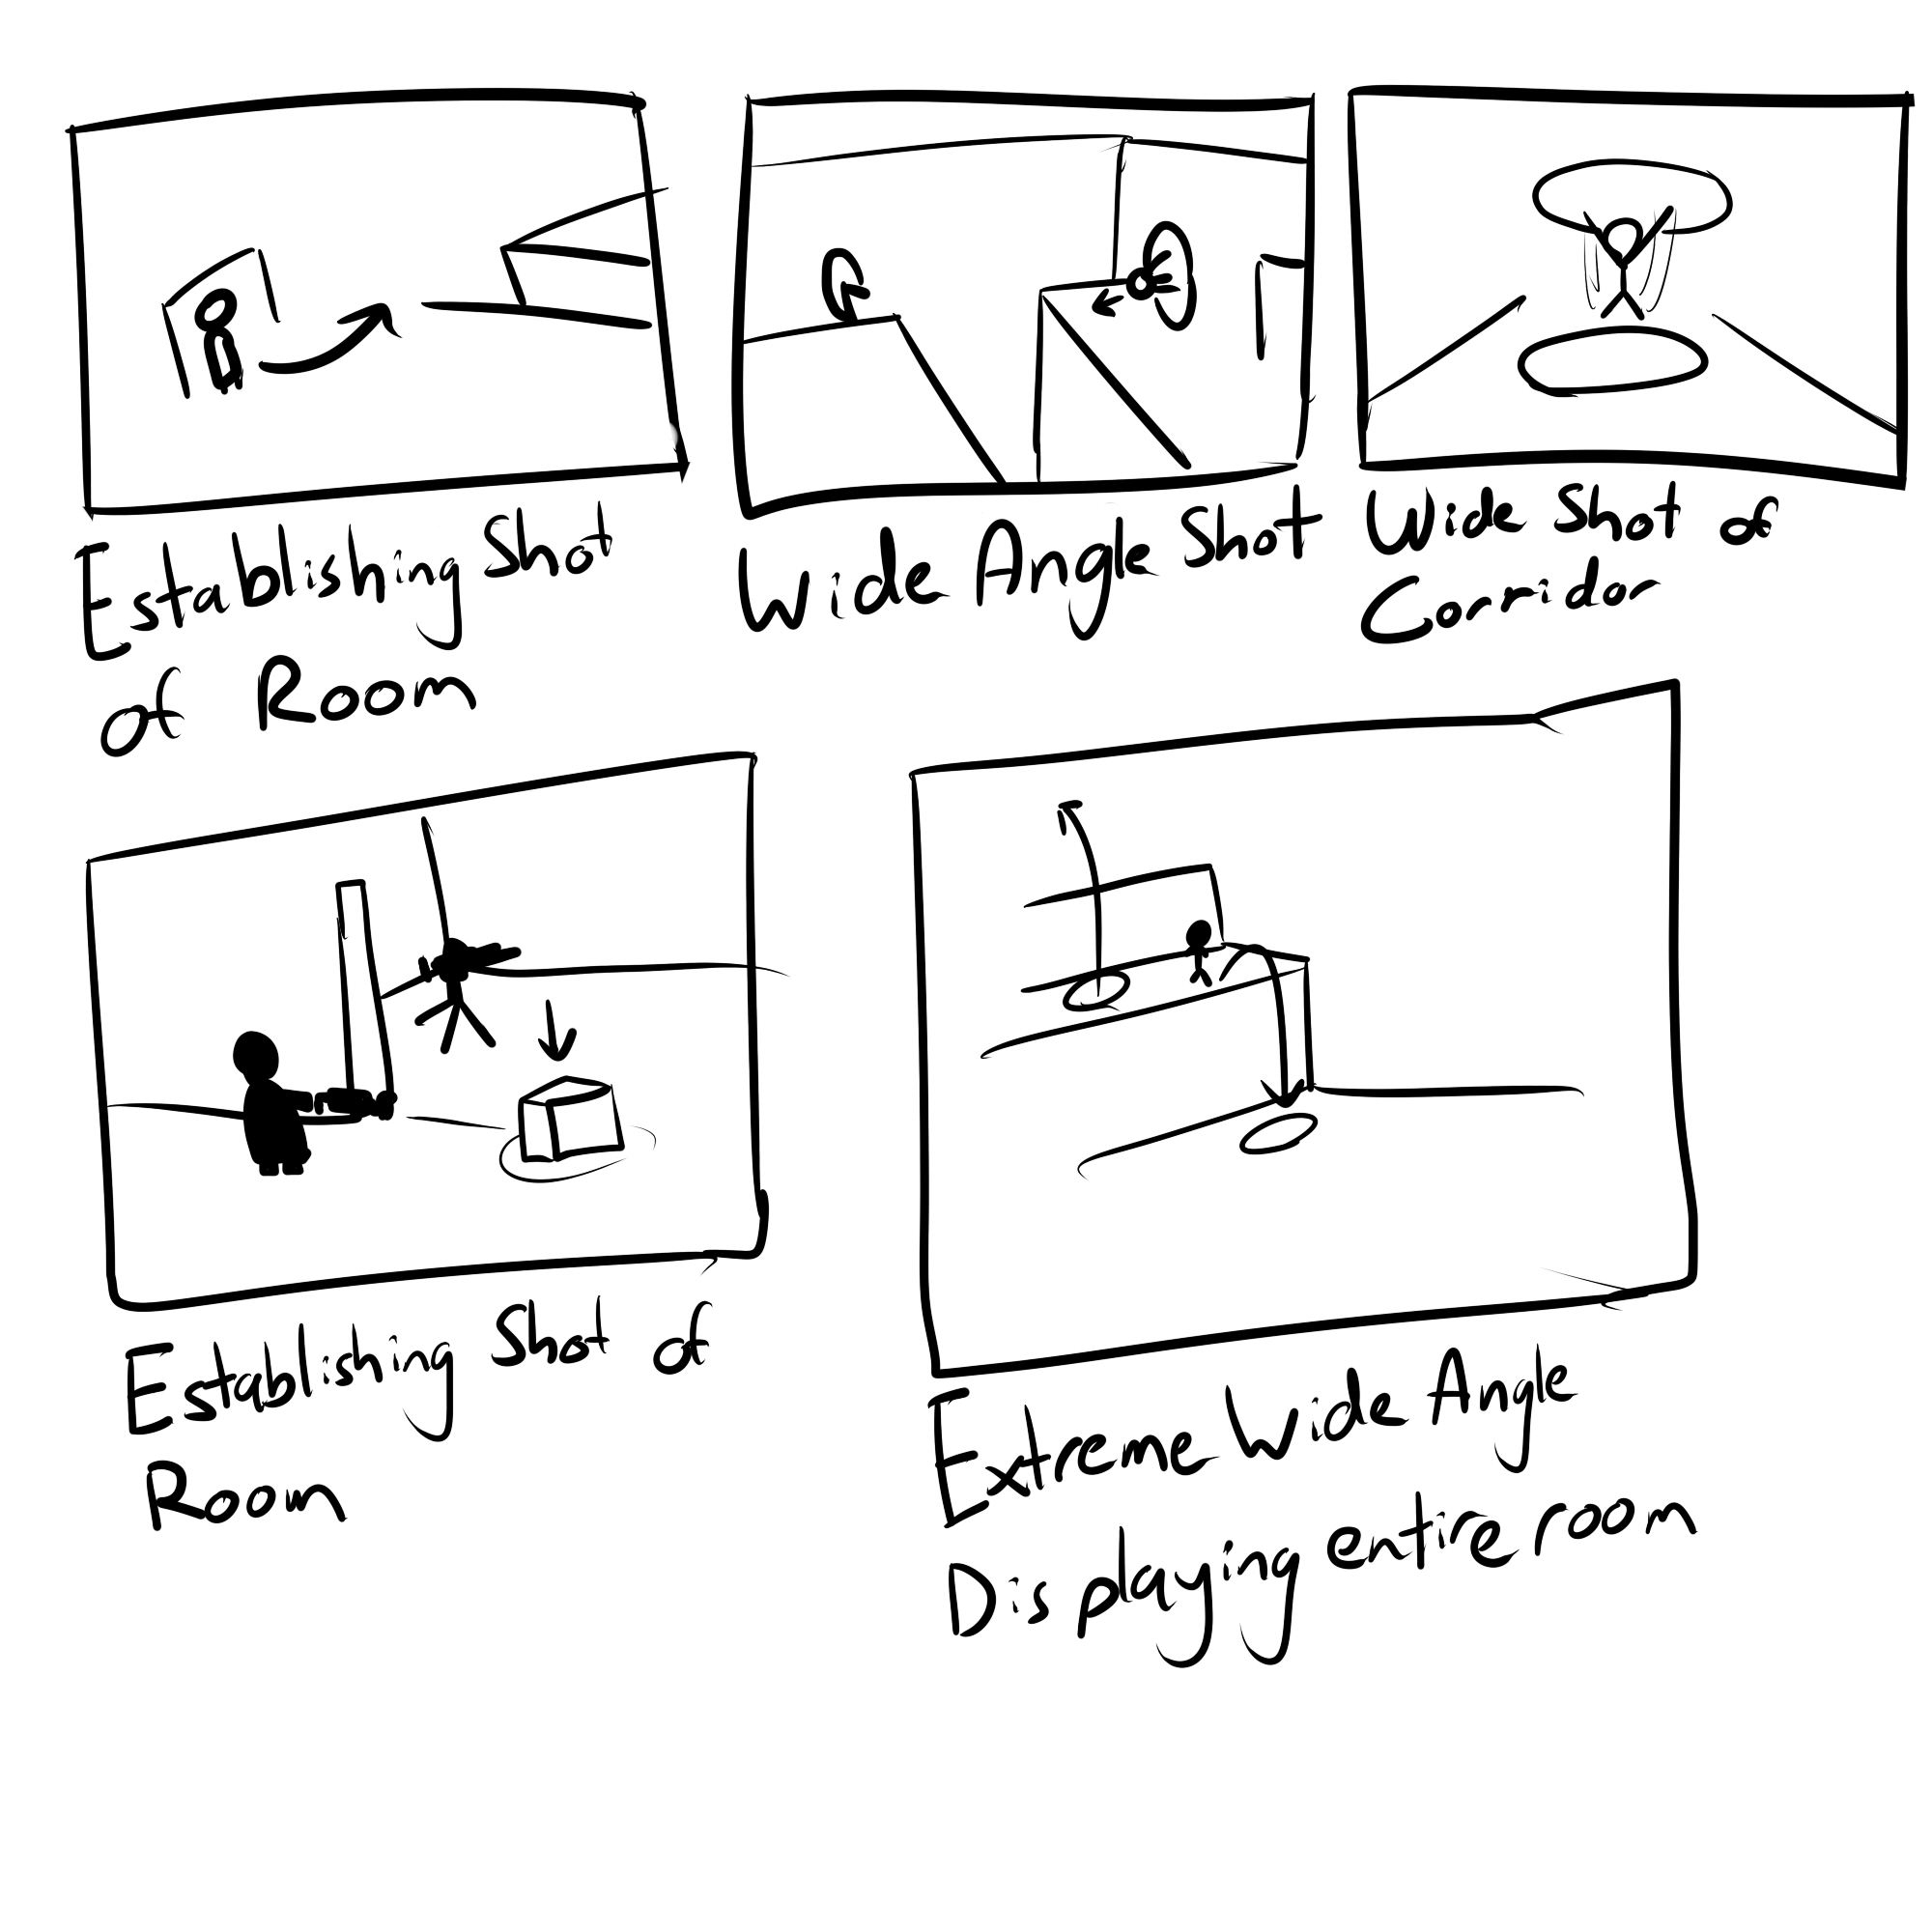 Establishing Shot
of Room
Wide Angle Shot
Wide Shot of
Corridor
Establishing Shot of
Room
Extreme Wide Angle
Displaying entire room